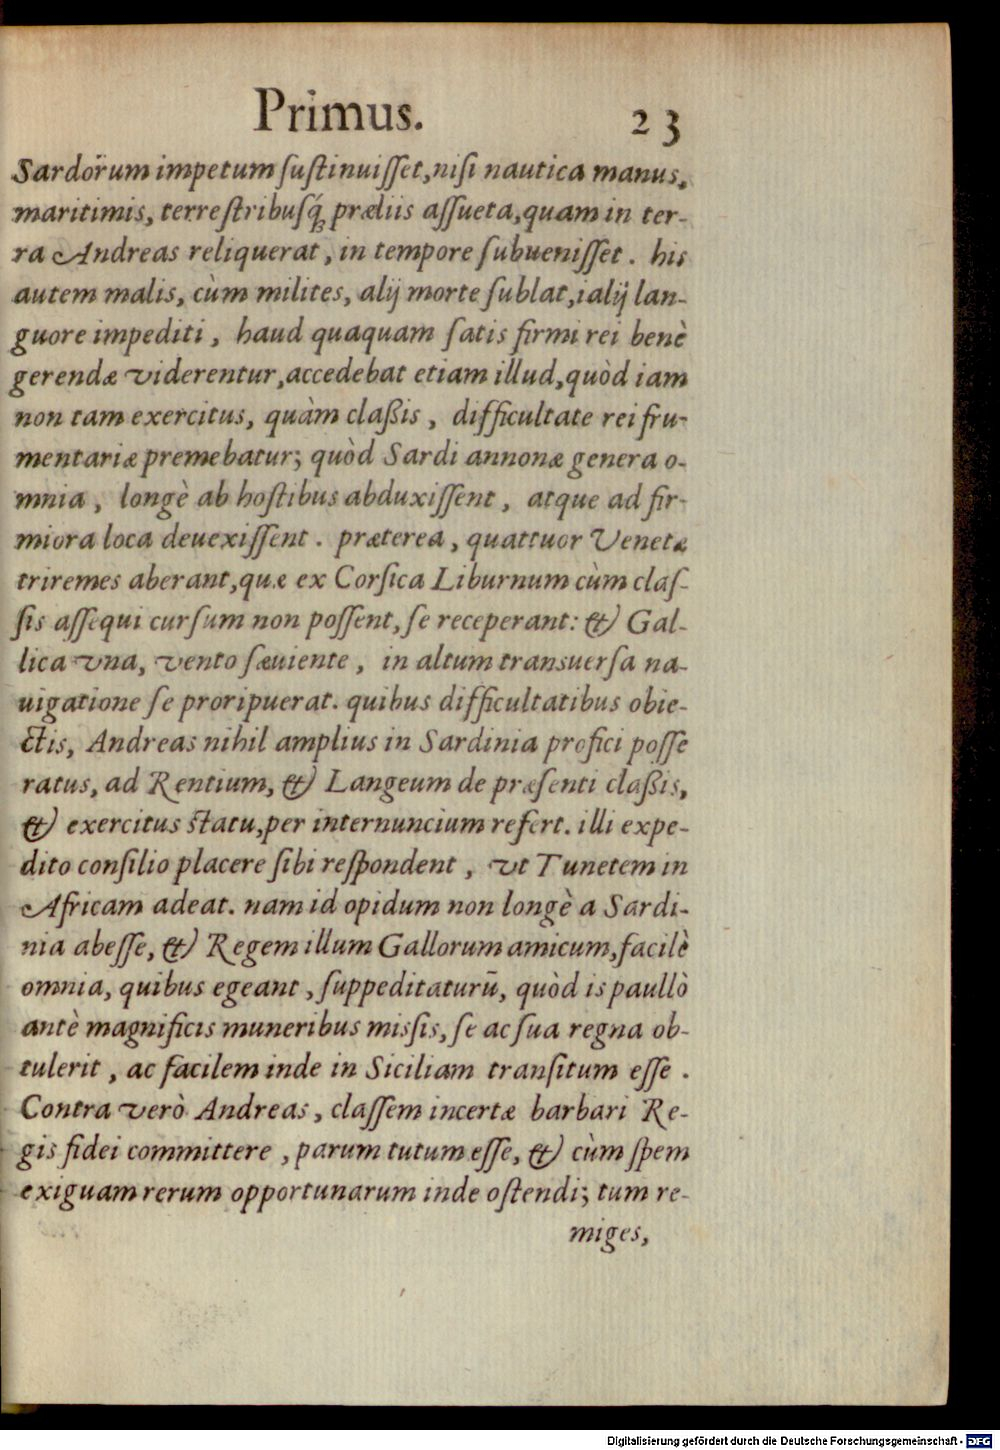 Primus. 23
Sardorum impetum ſuſtinuiſſet, niſi nautica manus,
maritimis, terreſtribuſq́; prœliis aſſueta, quam in ter-
ra Andreas reliquerat, in tempore ſubueniſſet. his
autem malis, cùm milites, alij morte ſublat,i alij lan-
guore impediti, haud quaquam ſatis firmi rei benè
gerendæ viderentur, accedebat etiam illud, quòd iam
non tam exercitus, quàm claßis, difficultate rei fru-
mentariæ premebatur; quòd Sardi annonæ genera o-
mnia, longè ab hoſtibus abduxiſſent, atque ad fir-
miora loca deuexiſſent. præterea, quattuor Venetæ
triremes aberant, quæ ex Corſica Liburnum cùm claſ-
ſis aſſequi curſum non poſſent, ſe receperant: & Gal-
lica vna, vento ſæuiente, in altum transuerſa na-
uigatione ſe proripuerat. quibus difficultatibus obie-
ctis, Andreas nihil amplius in Sardinia profici poſſe
ratus, ad Rentium, & Langeum de præſenti claßis,
& exercitus ſtatu, per internuncium refert. illi expe-
dito conſilio placere ſibi reſpondent, vt Tunetem in
Africam adeat. nam id opidum non longè a Sardi-
nia abeſſe, & Regem illum Gallorum amicum, facilè
omnia, quibus egeant, ſuppeditaturū, quòd is paullò
antè magnificis muneribus miſsis, ſe ac ſua regna ob-
tulerit, ac facilem inde in Siciliam tranſitum eſſe.
Contra verò Andreas, claſſem incertæ barbari Re-
gis fidei committere, parum tutum eſſe, & cùm ſpem
exiguam rerum opportunarum inde oſtendi; tum re-
miges,
Digitalisierung gefördert durch die Deutsche Forschungsgemeinschaft - DFG